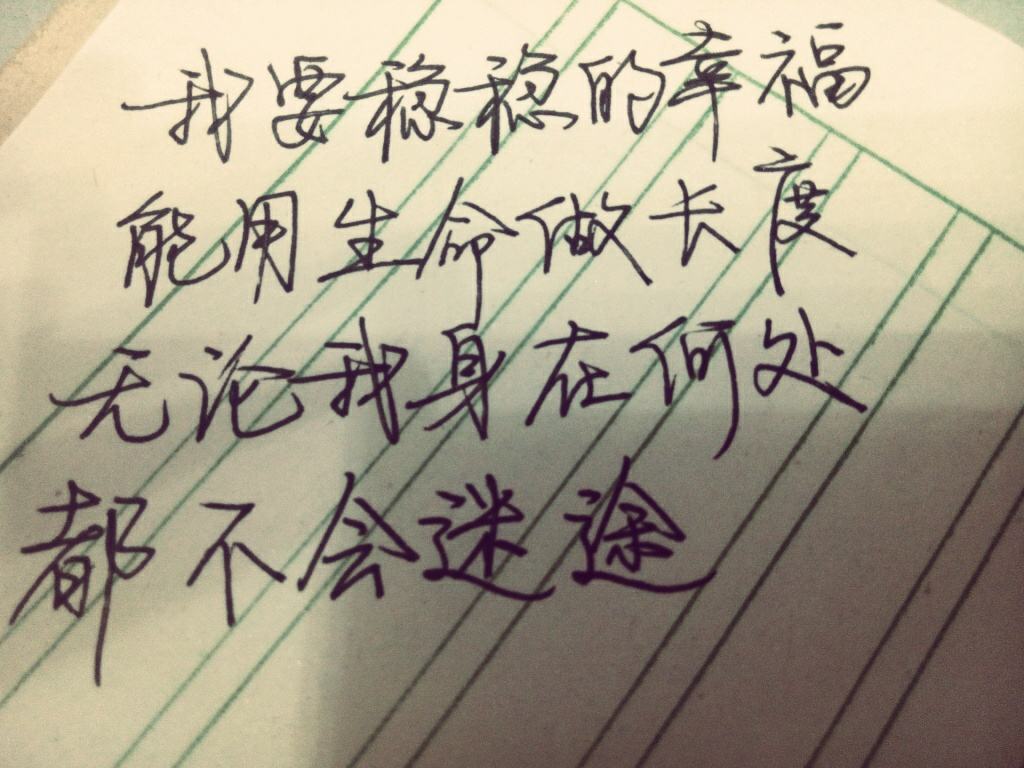 我要稳稳的幸福
能用生命做长度
无论我身在何处
都不会迷途